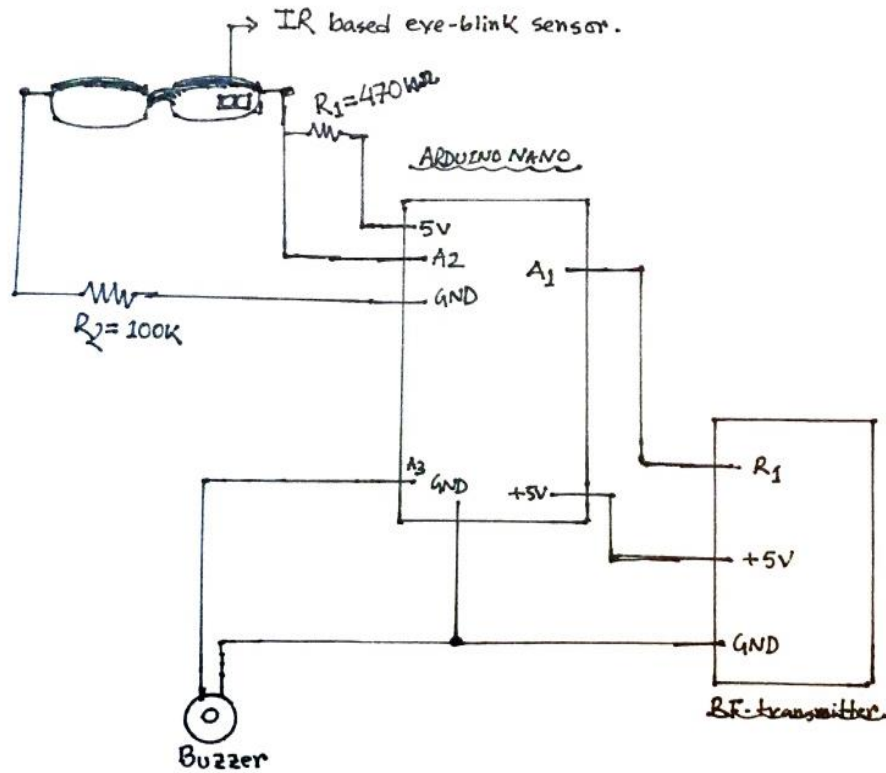 IR based eye-blink sensor.
R1=470KΩ
ARDUINO NANO
5V
A2
GND
A1
R2=100K
A3
GND
+5V
R1
+5V
GND
RF-transmitter
Buzzer